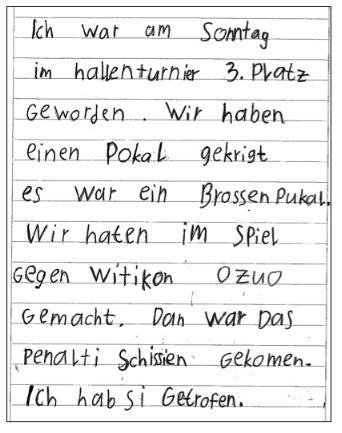 Ich war am Sonntag
im hallenturnier 3. Platz
Geworden. Wir haben
einen Pokal gekrigt
es war ein Brossen Pukal.
Wir haten im Spiel
Gegen Witikon OZUO
Gemacht. Dan war Das
Penalti Schissien Gekomen.
Ich hab si Getrofen.